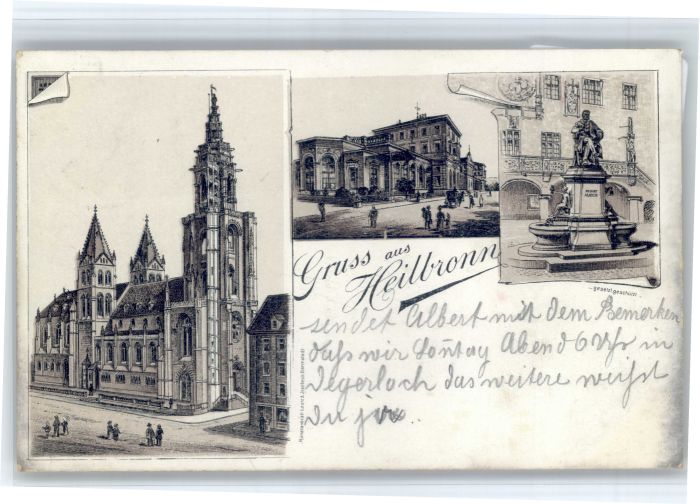 Gruss aus
Heilbronn
gesetzl geschützt
sendet Albert mit dem Bemerken
daß wir Sontag Abend 6 Uhr in
Degerloch das weitere weißt
du ja.